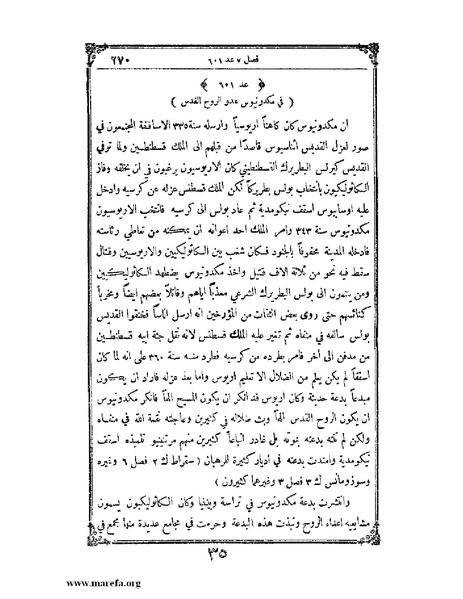 فصل ٧ عد ٦٠١
٦٧٠
﴿ عد ٦٠١ ﴾
( في مكدونيوس عدو الروح القدس )
ان مكدونيوس كان كاهناً اريوسياً وارسله سنة ٣٣٥ الاساقفة المجتمعون في
صور لعزل القديس اثناسيوس قاصداً من قبلهم الى الملك قسطنطين ولما ترفي
القديس كيرلس البطريرك القسطنطيني كان الاريوسيون يرغبون في ان يخلفه وفاز
الكاثوليكيون بانتخاب بولس بطريركاً لكن الملك قسطنس عزله عن كرسيه وادخل
عليه اوسابيوس اسقف نيكومدية ثم عاد بولس الى كرسيه فانتخب الاريوسيون
مكدونيوس سنة ٣٤٣ وامر الملك احد اعوانه ان يمكنه من تعاطي رئاسته
فادخله المدينة محفوفاً بالجنود فكان شغب بين الكاثوليكيين والاريوسيين وقتال
سقط فيه نحو من ثلاثة الاف قتيل واخذ مكدونيوس يضطهد الكاثوليكيين
ومن ينتمون الى بولس البطريرك الشرعي معذباً اياهم وقاتلاً بعضهم ايضاً ومخرباً
كنائسهم حتى روى بعض الثقات من المؤرخين انه ارسل اناساً فخنقوا القديس
بولس سالفه في منفاه ثم تغير عليه الملك قسطنس لانه نقل جثة ابيه قسطنطين
من مدفن الى آخر فامر بطرده من كرسيه فطرد منه سنة ٣٦٠ على انه لما كان
اسقفاً لم يكن يعلم من الضلال الا تعليم اريوس واما بعد عزله فاراد ان يكون
مبدعاً بدعة حديثة وكان اريوس قد انكر ان يكون المسيح الهاً فانكر مكدونيوس
ان يكون الروح القدس الهاً وبث ضلاله في كثيرين وعاجلته نقمة الله في منفاه
ولكن لم تمت بدعته بموته بل غادر اتباعاً كثيرين منهم مرتينيو تلميذه اسقف
نيكومدية وامتدت بدعته في اديار كثيرة للرهبان ( سقراط ك ٢ فصل ٦ وغيره
وسوزومانس ك ٣ فصل ٣ وغيرهما كثيرون )
وانتشرت بدعة مكدونيوس في تراسة وبيتينيا وكان الكاثوليكيون يسمون
مشايعيه اعداء الروح ونبذت هذه البدعة وحرمت في مجامع عديدة منها مجمع في
٣٥
www.marefa.org